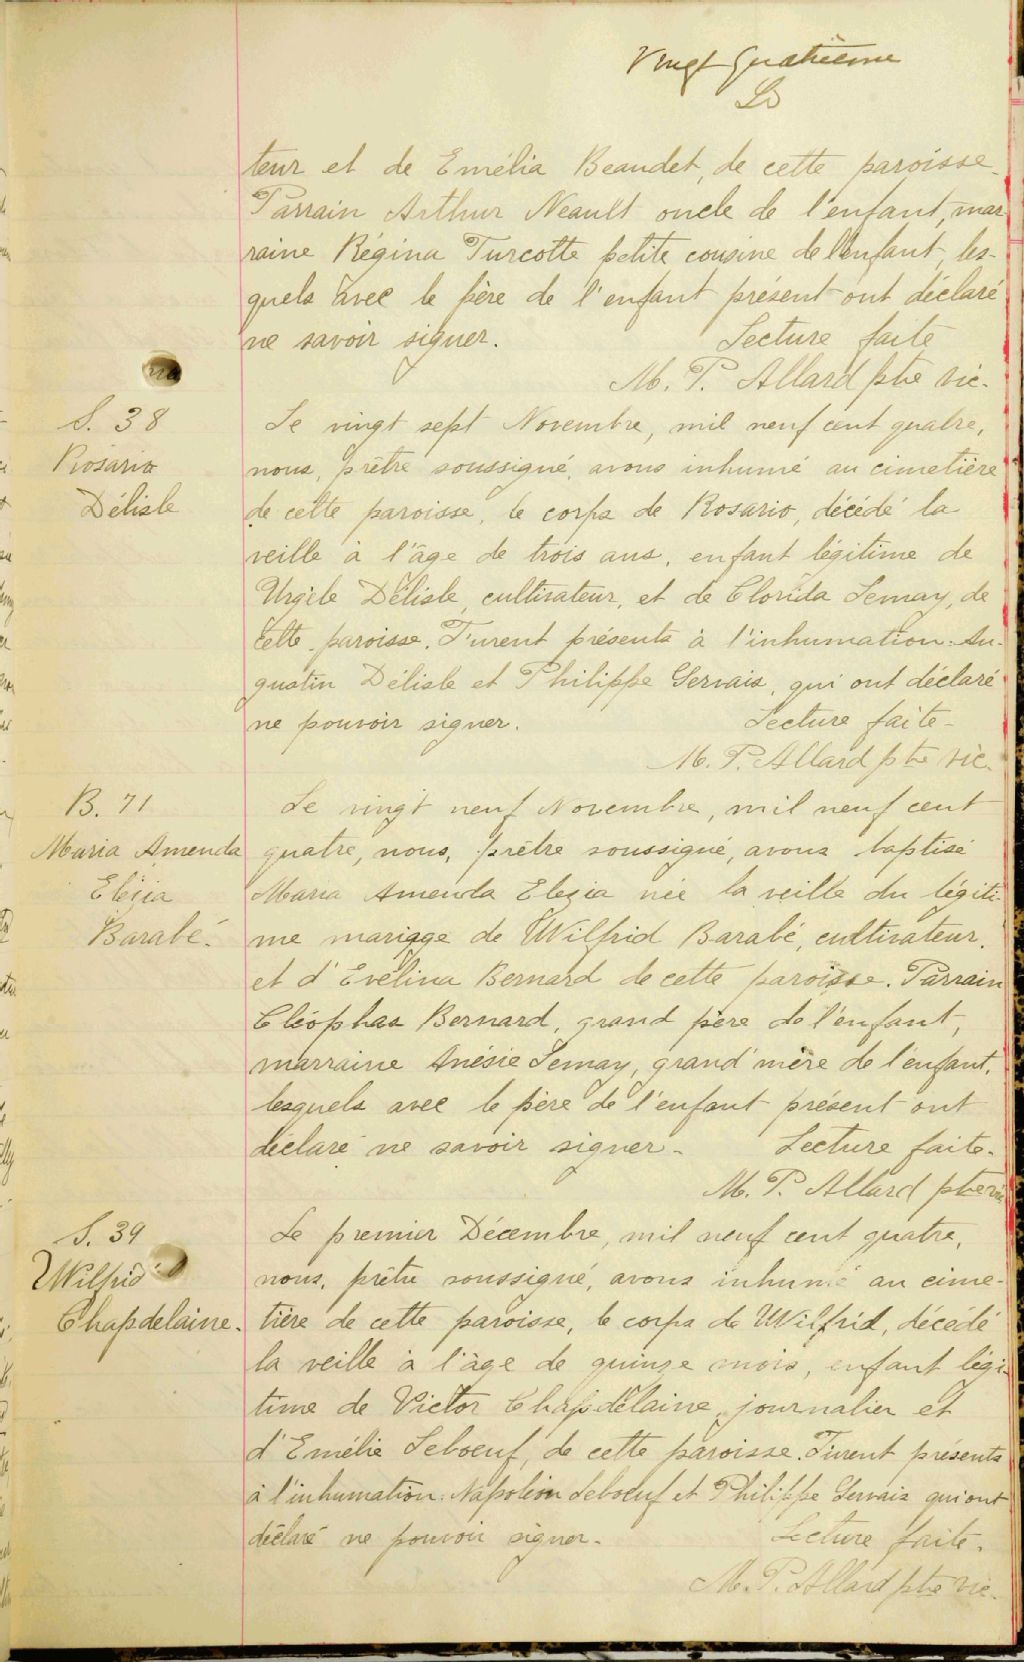 Vingt quatrième
teur et de Emélia Beaudet, de cette paroisse.
Parrain Arthur Neault oncle de l'enfant, mar-
raine Régina Turcotte petite cousine de l'enfant, les-
quels avec le père de l'enfant présent ont déclaré
ne savoir signer. Lecture faite
M. P. Allard ptre vic.
S. 38
Rosario
Délisle
Le vingt sept Novembre, mil neuf cent quatre,
nous, prêtre soussigné, avons inhumé au cimetière
de cette paroisse, le corps de Rosario, décédé la
veille à l'âge de trois ans, enfant légitime de
Urgèle Délisle, cultivateur, et de Clorida Lemay, de
cette paroisse. Furent présents à l'inhumation: Au-
gustin Délisle et Philippe Gervais, qui ont déclaré
ne pouvoir signer. Lecture faite-
M. P. Allard ptre vic.
B. 71
Maria Amenda
Elézia
Barabé.
Le vingt neuf Novembre, mil neuf cent
quatre, nous, prêtre soussigné, avons baptisé
Maria Amenda Elezia née la veille du légiti-
me mariage de Wilfrid Barabé, cultivateur,
et d'Evélina Bernard de cette paroisse. Parrain
Cléophas Bernard, grand père de l'enfant,
marraine Anésie Lemay, grand'mère de l'enfant,
lesquels avec le père de l'enfant présent ont
déclaré ne savoir signer- Lecture faite.
M. P. Allard ptre vic
S. 39
Wilfrid
Chapdelaine.
Le premier Décembre, mil neuf cent quatre,
nous, prêtre soussigné, avons inhumé au cime-
tière de cette paroisse, le corps de Wilfrid, décédé
la veille à l'âge de quinze mois, enfant légi-
time de Victor Chapdélaine, journalier et
d'Emélie Leboeuf, de cette paroisse. Furent présents
à l'inhumation: Napoléon Leboeuf et Philippe Gervais qui ont
déclaré ne pouvoir signer. Lecture faite.
M. P. Allard ptre vic.